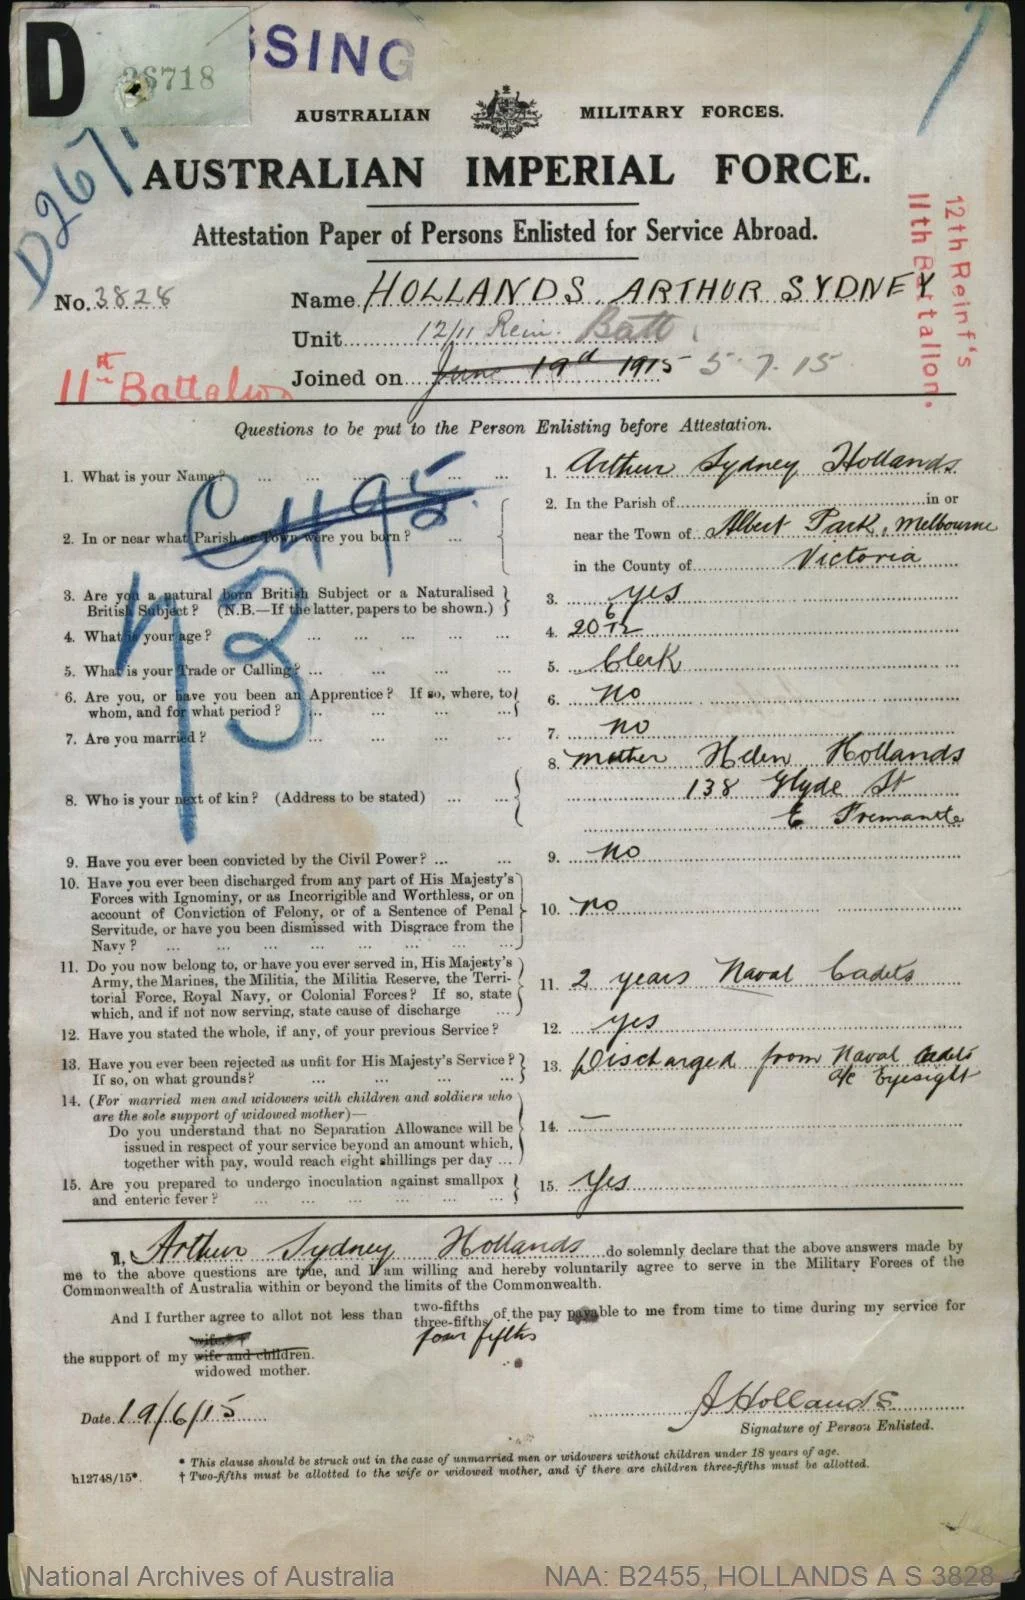 D
26718
SSING
D2671
AUSTRALIAN MILITARY FORCES.
AUSTRALIAN IMPERIAL FORCE.
Attestation Paper of Persons Enlisted for Service Abroad.
12th Reinf's
11th Battalion.
No. 3828
Name HOLLANDS, ARTHUR SYDNEY
Unit 12/11 Rein. Batt
11th Battalion
Joined on June 19th 1915 5.7.15
Questions to be put to the Person Enlisting before Attestation.
1. What is your Name? ... 1. Arthur Sydney Hollands
C495.
2. In or near what Parish or Town were you born? ... 2. In the Parish of in or
near the Town of Albert Park, Melbourne
in the County of Victoria
3. Are you a natural born British Subject or a Naturalised
British Subject? (N.B.—If the latter, papers to be shown.) 3. yes
4. What is your age? ... 4. 20 6/12
5. What is your Trade or Calling? ... 5. Clerk
6. Are you, or have you been an Apprentice? If so, where, to
whom, and for what period? ... 6. No
7. Are you married? ... 7. no
8. Who is your next of kin? (Address to be stated) ... 8. mother Helen Hollands
138 Glyde St
E Fremantle
9. Have you ever been convicted by the Civil Power? ... 9. no
10. Have you ever been discharged from any part of His Majesty's
Forces with Ignominy, or as Incorrigible and Worthless, or on
account of Conviction of Felony, or of a Sentence of Penal
Servitude, or have you been dismissed with Disgrace from the
Navy? ... 10. no
11. Do you now belong to, or have you ever served in, His Majesty's
Army, the Marines, the Militia, the Militia Reserve, the Terri-
torial Force, Royal Navy, or Colonial Forces? If so, state
which, and if not now serving, state cause of discharge ... 11. 2 years Naval Cadets
12. Have you stated the whole, if any, of your previous Service? 12. yes
13. Have you ever been rejected as unfit for His Majesty's Service?
If so, on what grounds? ... 13. Discharged from Naval Cadets
a/c Eyesight
14. (For married men and widowers with children and soldiers who
are the sole support of widowed mother)—
Do you understand that no Separation Allowance will be
issued in respect of your service beyond an amount which,
together with pay, would reach eight shillings per day ... 14. —
15. Are you prepared to undergo inoculation against smallpox
and enteric fever? ... 15. Yes
I, Arthur Sydney Hollands do solemnly declare that the above answers made by
me to the above questions are true, and I am willing and hereby voluntarily agree to serve in the Military Forces of the
Commonwealth of Australia within or beyond the limits of the Commonwealth.
And I further agree to allot not less than two-fifths three-fifths four fifths of the pay payable to me from time to time during my service for
the support of my wife and children.
widowed mother.
Date 19/6/15
A Hollands
Signature of Person Enlisted.
* This clause should be struck out in the case of unmarried men or widowers without children under 18 years of age.
h12748/15*.
† Two-fifths must be allotted to the wife or widowed mother, and if there are children three-fifths must be allotted.
National Archives of Australia
NAA: B2455, HOLLANDS A S 3828